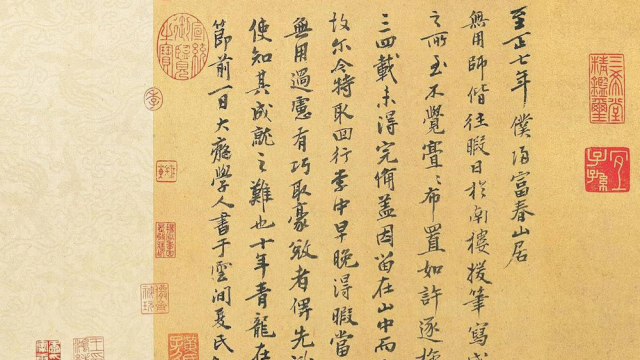 三希堂精鑑璽
宜子孫
至正七年僕歸富春山居
無用師偕往暇日於南樓援筆寫成
之所至不覺亹〻布置如許逐旋
三四載未得完備盖因留在山中而
故尔今特取回行李中早晚得暇當
無用過慮有巧取豪敚者俾先識
使知其成就之難也十年青龍在
節前一日大癡學人書于雲間夏氏
宣統御覽之寶